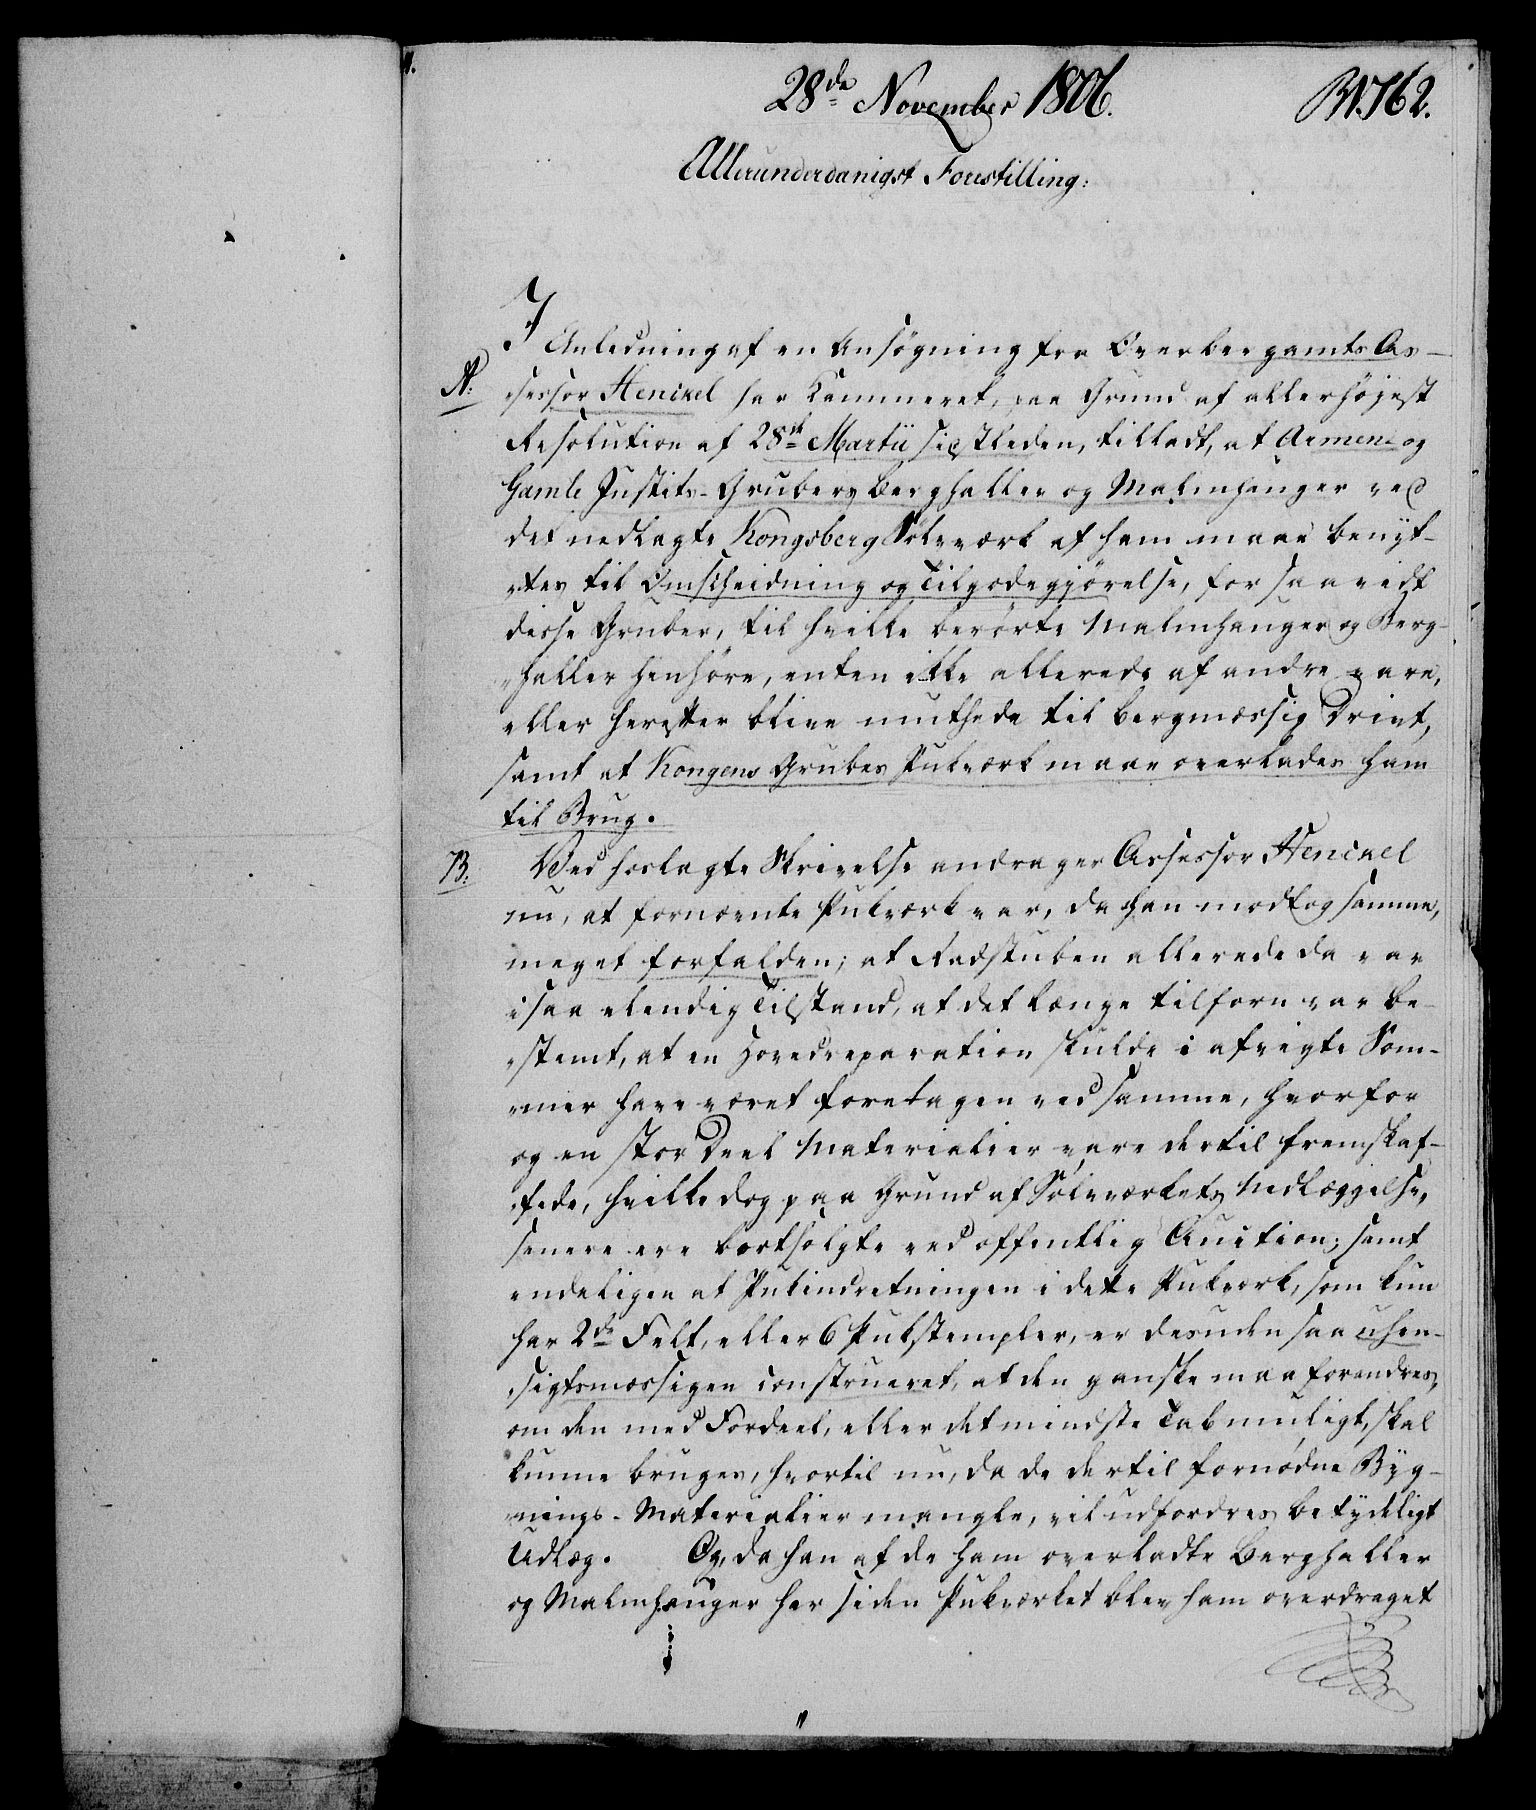 28de November 1806.
N. 762.
Allerunderdanigst Forestilling:
I Anledning af en Ansøgning fra Overbergamts As-
A.
sessor Henckel har Kammeret, paa Grund af allerhøjest
Resolution af 28de Martii sidstleden, tilladt, at Armen- og
Gamle Justits-Grubers Berghalder og Malmhauger ved
det nedlagte Kongsberg Sølvværk af ham maae benyt-
tes til Omscheidning og Tilgodegjørelse, for saavidt
disse Gruber, til hvilke berørte Malmhauger og Berg-
haller henhøre, enten ikke allerede af andre vare,
eller herefter blive muthede til bergmæssig Drivt,
samt at Kongens Grubes Pukværk maae overlades ham
til Brug.
B.
Ved hoslagte Skrivelse andrager Assessor Henckel
nu, at fornævnte Pukværk var, da han modtog samme,
meget forfalden; at Radstuben allerede da var
i saa elendig Tilstand, at det længe tilforn var be-
stemt, at en Hovedreparation skulde i afvigte Som-
mer have været foretagen ved samme, hvorfor
og en stor Deel Materialier vare dertil fremskaf-
fede, hvilke dog paa Grund af Sølvværkets Nedlæggelse,
senere ere bortsolgte ved offentlig Auction; samt
endeligen at Pukindretningen i dette Pukværk, som kun
har 2de Felt, eller 6 Pukstempler, er desuden saa uhen-
sigtsmæssigen construeret, at den ganske maa forandres,
om den med Fordeel, eller det mindste Tab muligt, skal
kunne bruges, hvortil nu, da de dertil fornødne Byg-
nings-Materialier mangle, vil udfordres betydeligt
Udlæg. Og, da han af de ham overladte Berghaller
og Malmhauger har siden Pukværket blev ham overdraget